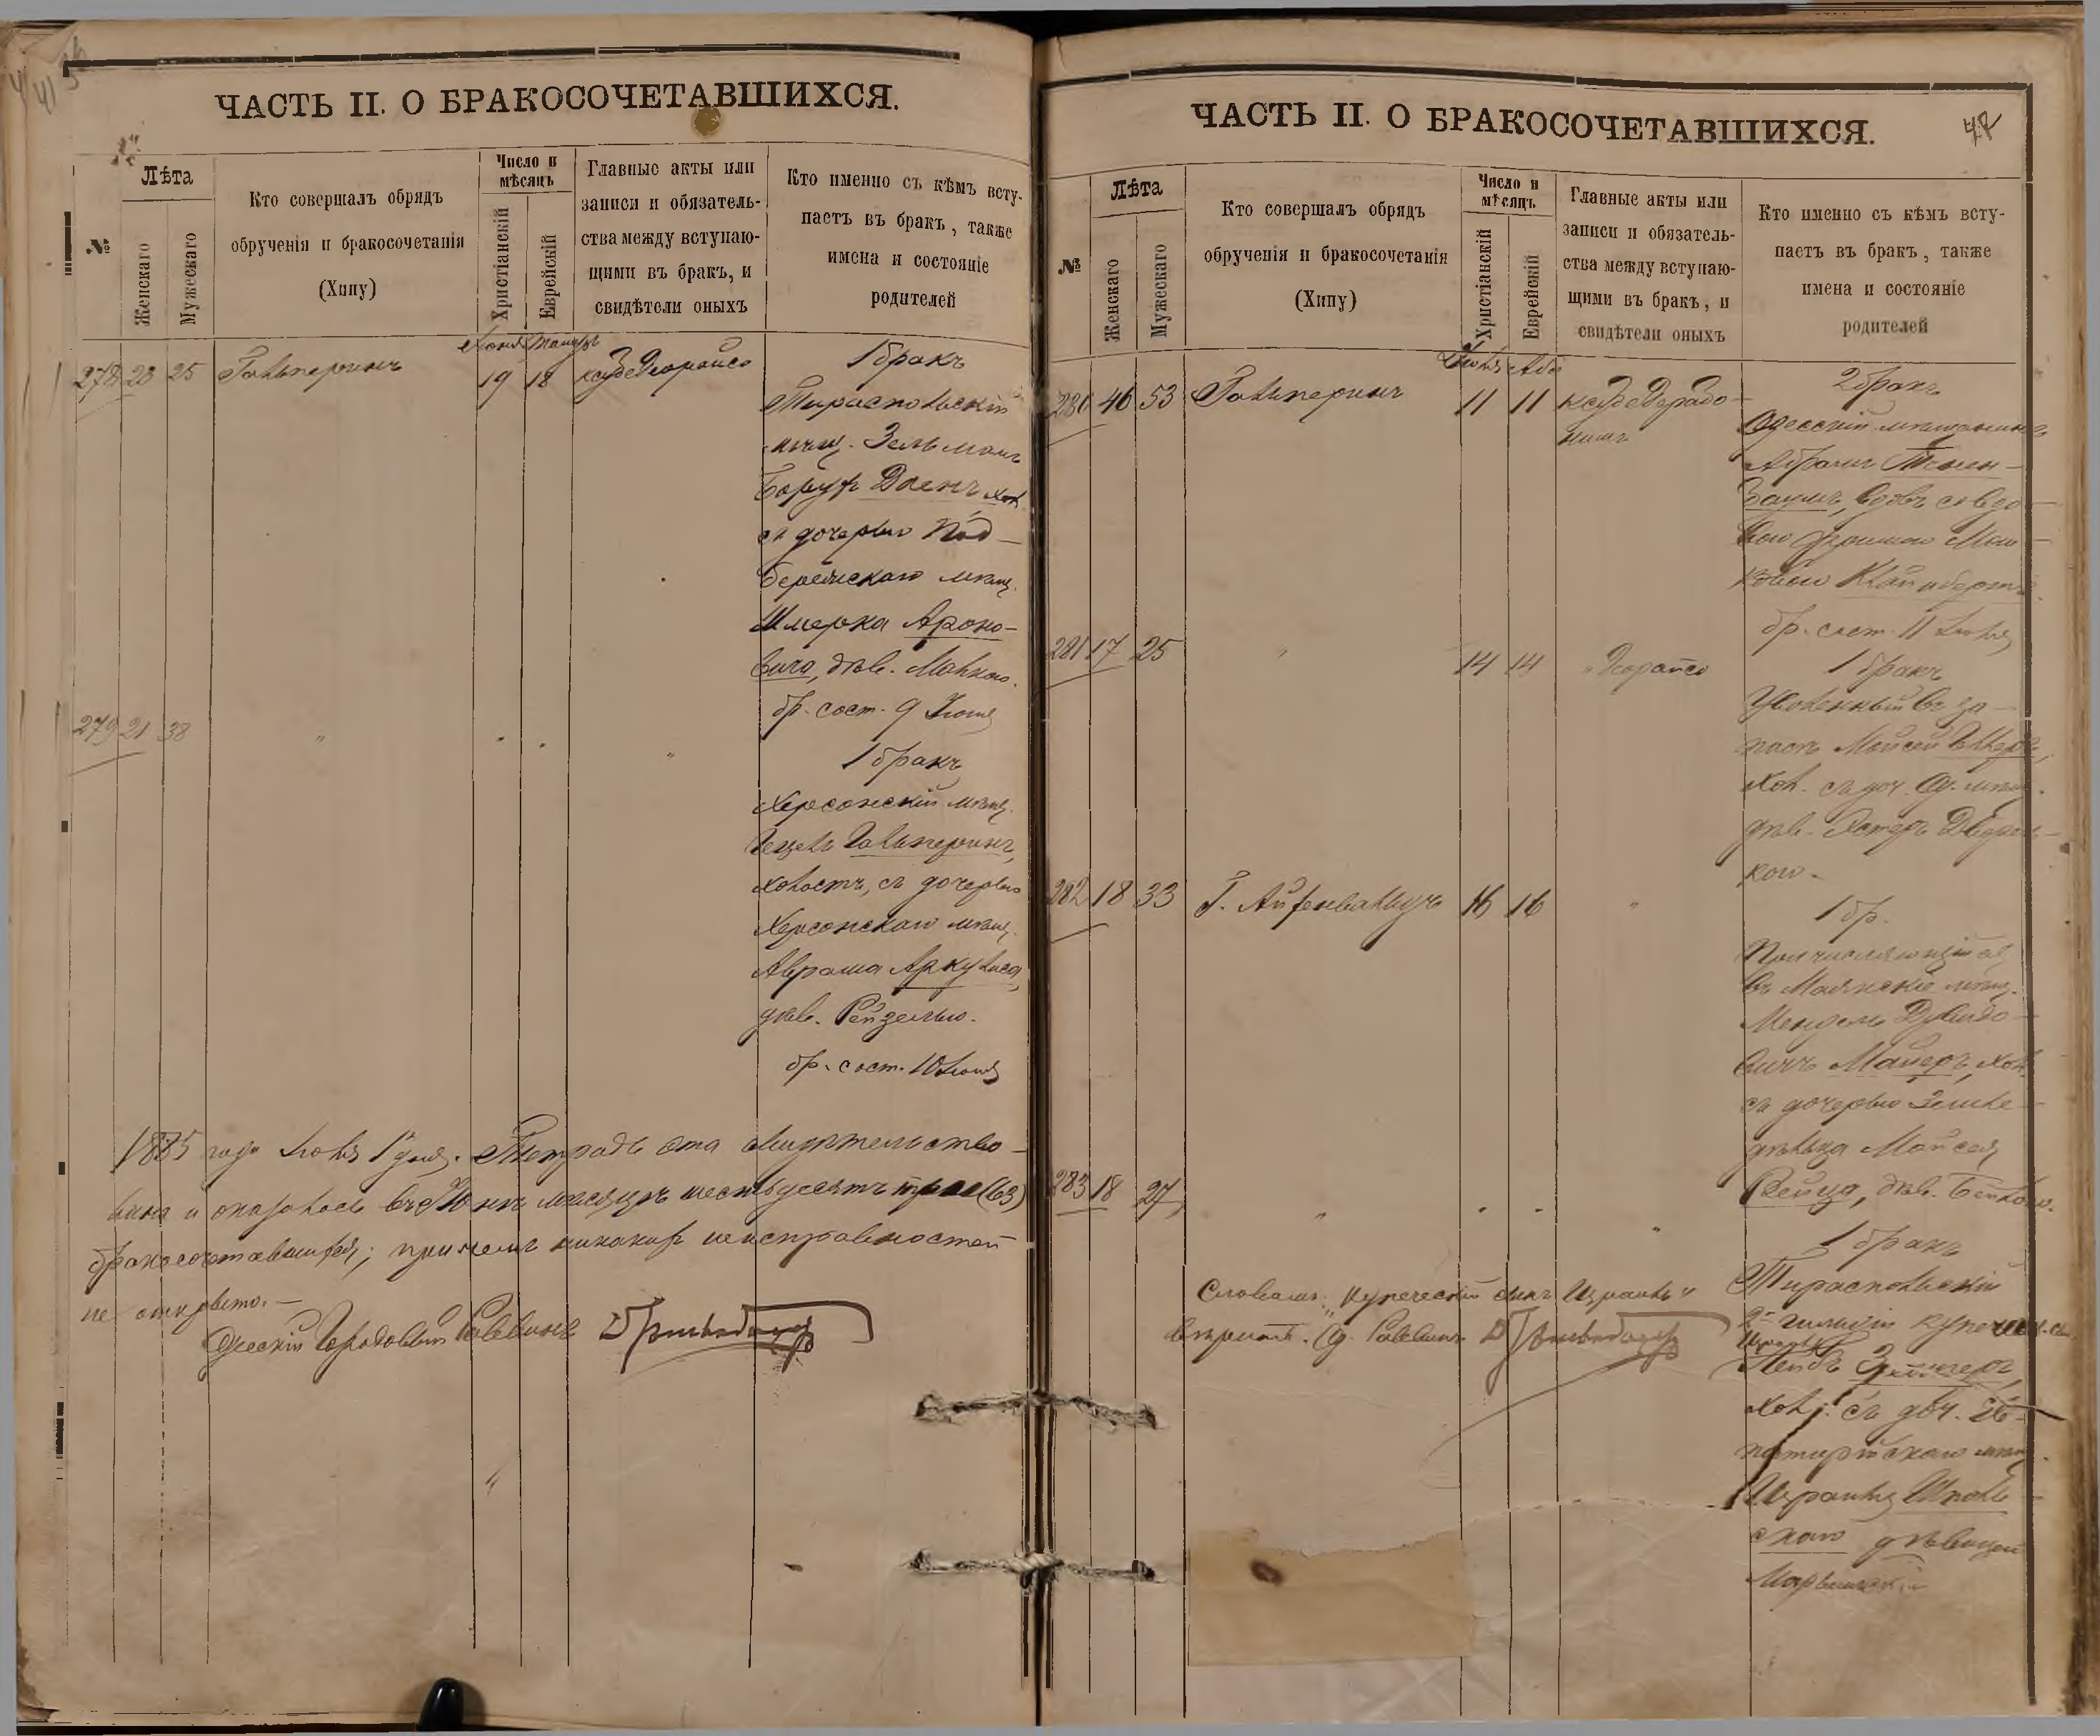 ЧАСТЬ II. О БРАКОСОЧЕТАВШИХСЯ.
№
Лѣта
Женскаго
Мужескаго
Кто совершалъ обрядъ
обрученія и бракосочетанія
(Хипу)
Число и
мѣсяцъ
Христіанскій
Еврейскій
Главные акты или
записи и обязатель-
ства между вступаю-
щими въ бракъ, и
свидѣтели оныхъ
Кто именно съ кѣмъ всту-
паетъ въ бракъ, также
имена и состояніе
родителей
278 23 25 Гальперинъ 19 18
1 бракъ
Тираспольскій
мѣщ. Зельманъ
Борухъ Доенъ хол.
съ дочерью Под-
березскаго мѣщ.
Шмерка Ароно-
вича, дѣв. Малкою.
бр. сост. 9 Іюня
279 21 38 " " " "
1 бракъ
Херсонскій мѣщ.
Гецель Гальперинъ,
холостъ, съ дочерью
Херсонскаго мѣщ.
Аврама Аркулиса,
дѣв. Рейзелью.
бр. сост. 10 Іюня
1885 года Іюля 1 дня. Тетрадь эта свидѣтельство-
вана и оказалось въ Юнѣ мѣсяцѣ шестьдесятъ три (63)
бракосочетавшихся; причемъ никакихъ неисправностей
не открыто. —
Одесскій Городовой Раввинъ
ЧАСТЬ II. О БРАКОСОЧЕТАВШИХСЯ.
№
Лѣта
Женскаго
Мужескаго
Кто совершалъ обрядъ
обрученія и бракосочетанія
(Хипу)
Число и
мѣсяцъ
Христіанскій
Еврейскій
Главные акты или
записи и обязатель-
ства между вступаю-
щими въ бракъ, и
свидѣтели оныхъ
Кто именно съ кѣмъ всту-
паетъ въ бракъ, также
имена и состояніе
родителей
Іюля Аба
280 46 53 Гальперинъ 11 11
2 бракъ
Одесскій мѣщанинъ
Абрамъ Тенен-
баумъ, вдовъ съ вдо-
вою
бр. сост. 11 Іюля
281 17 25 " 14 14
1 бракъ
Уволенный въ за-
пасъ Мойсей
хол. съ доч. Од. мѣщ.
дѣв. Эстеръ
кою.
282 18 33 Г. Айзенвальдъ 16 16 "
1 бр.
Причисляющійся
въ Маякскіе мѣщ.
Мендель Дувидо-
вичъ Майеръ, хол.
съ дочерью Земле-
дѣльца Мойсея
Рейца, дѣв. Бейлою.
283 18 27 " " " "
1 бракъ
Тираспольскій
2й гильдіи купеческ. сынъ
Израиль
Лейбъ
хол. съ доч. Ев-
паторійскаго мѣщ.
Израиля Шполь-
скаго дѣвицей
Словамъ: „купеческій сынъ Израиль"
вѣрить. Од. Раввинъ